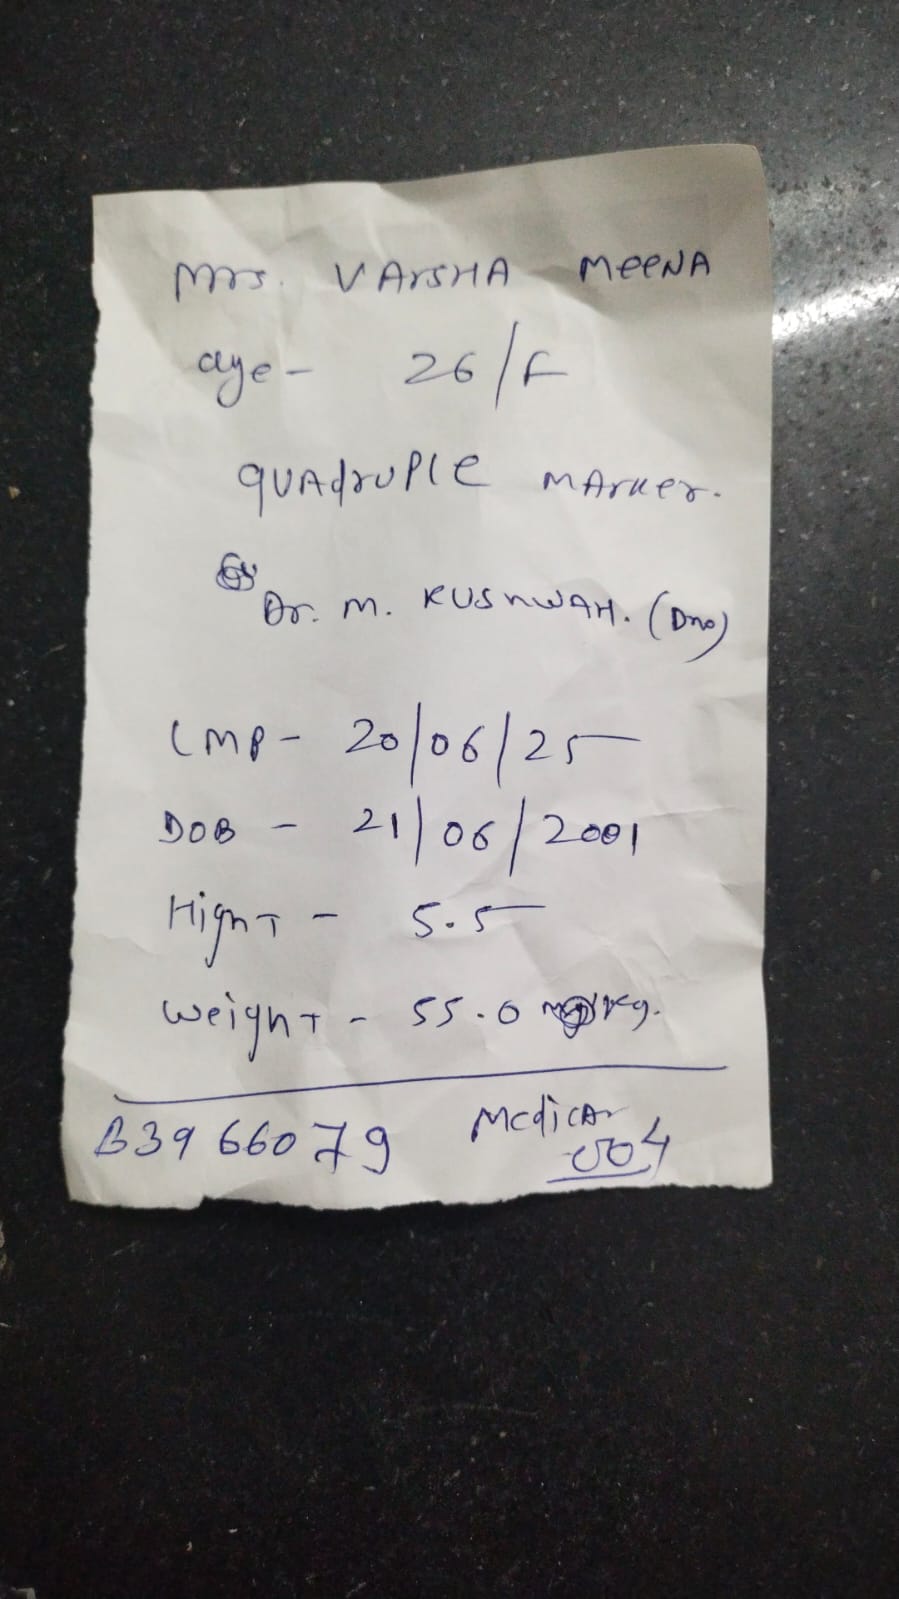 Mrs. VArsHA MeeNA
age - 26/F
quadruple marker.
Dr. M. KUSHWAH. (Dno)
LMP - 20/06/25
DOB - 21/06/2001
Hight - 5.5
Weight - 55.0 kg.
B3966079 Medical
004